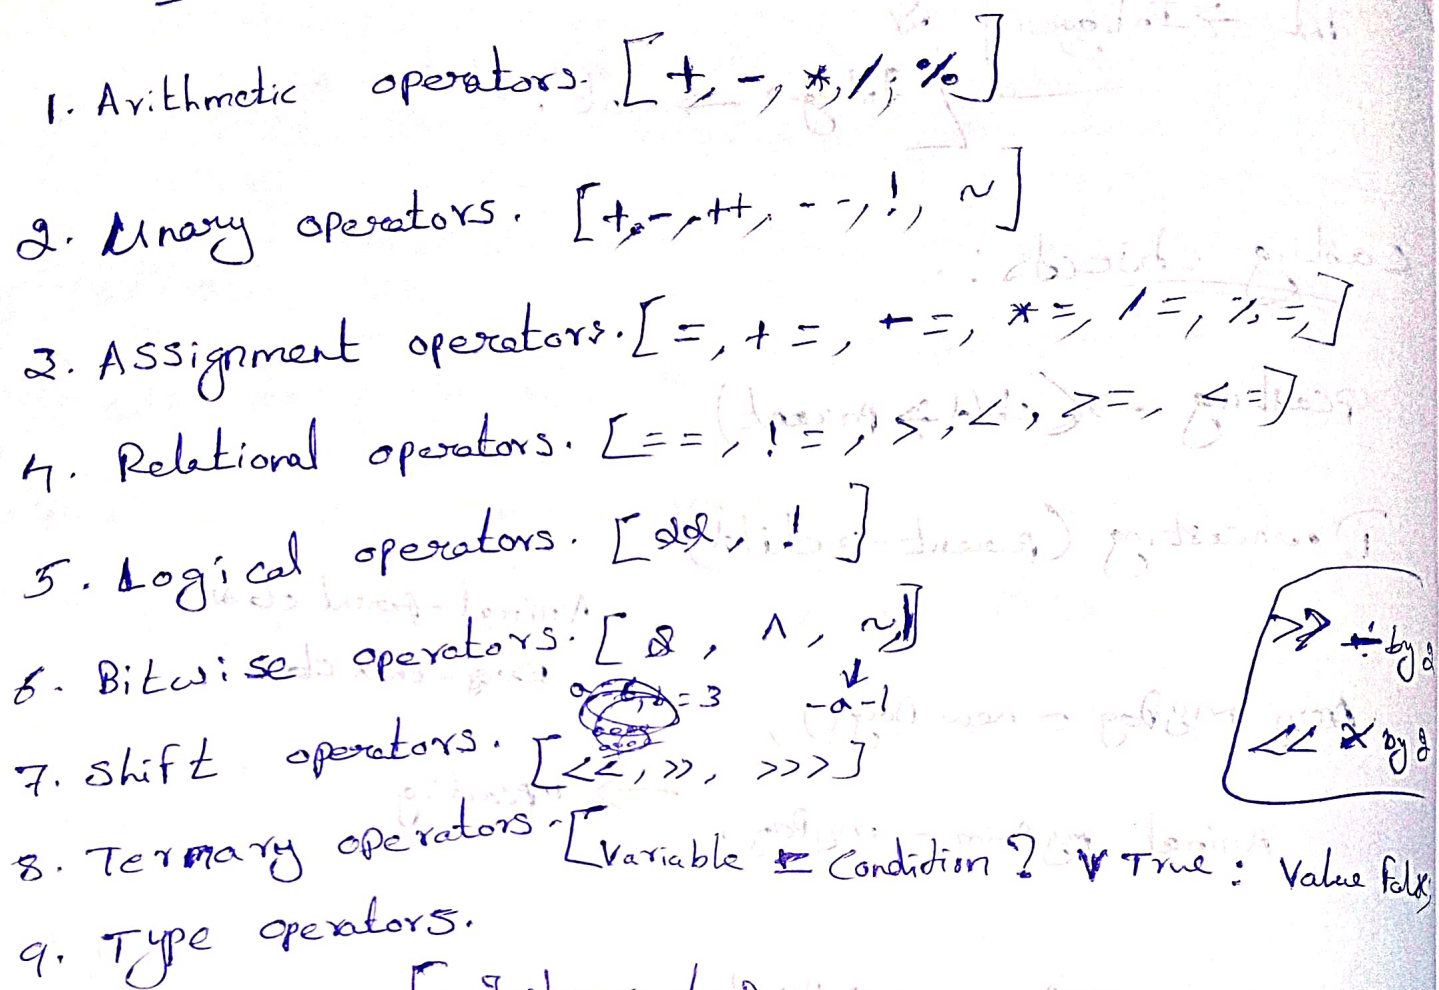 1. Arithmetic operators. [+, -, *, /, %]
2. Unary operators. [+, -, ++, --, !, ~]
3. Assignment operators. [=, +=, -=, *=, /=, %=,]
4. Relational operators. [==, !=, >, <, >=, <=]
5. Logical operators. [&&, ! ]
6. Bitwise operators. [&, ^, ~]
-a-1
= 3
>> ÷ by 2
<< × by 2
7. Shift operators. [<<, >>, >>>]
8. Termary operators. [Variable = Condition ? V True : Value False;
9. Type operators.